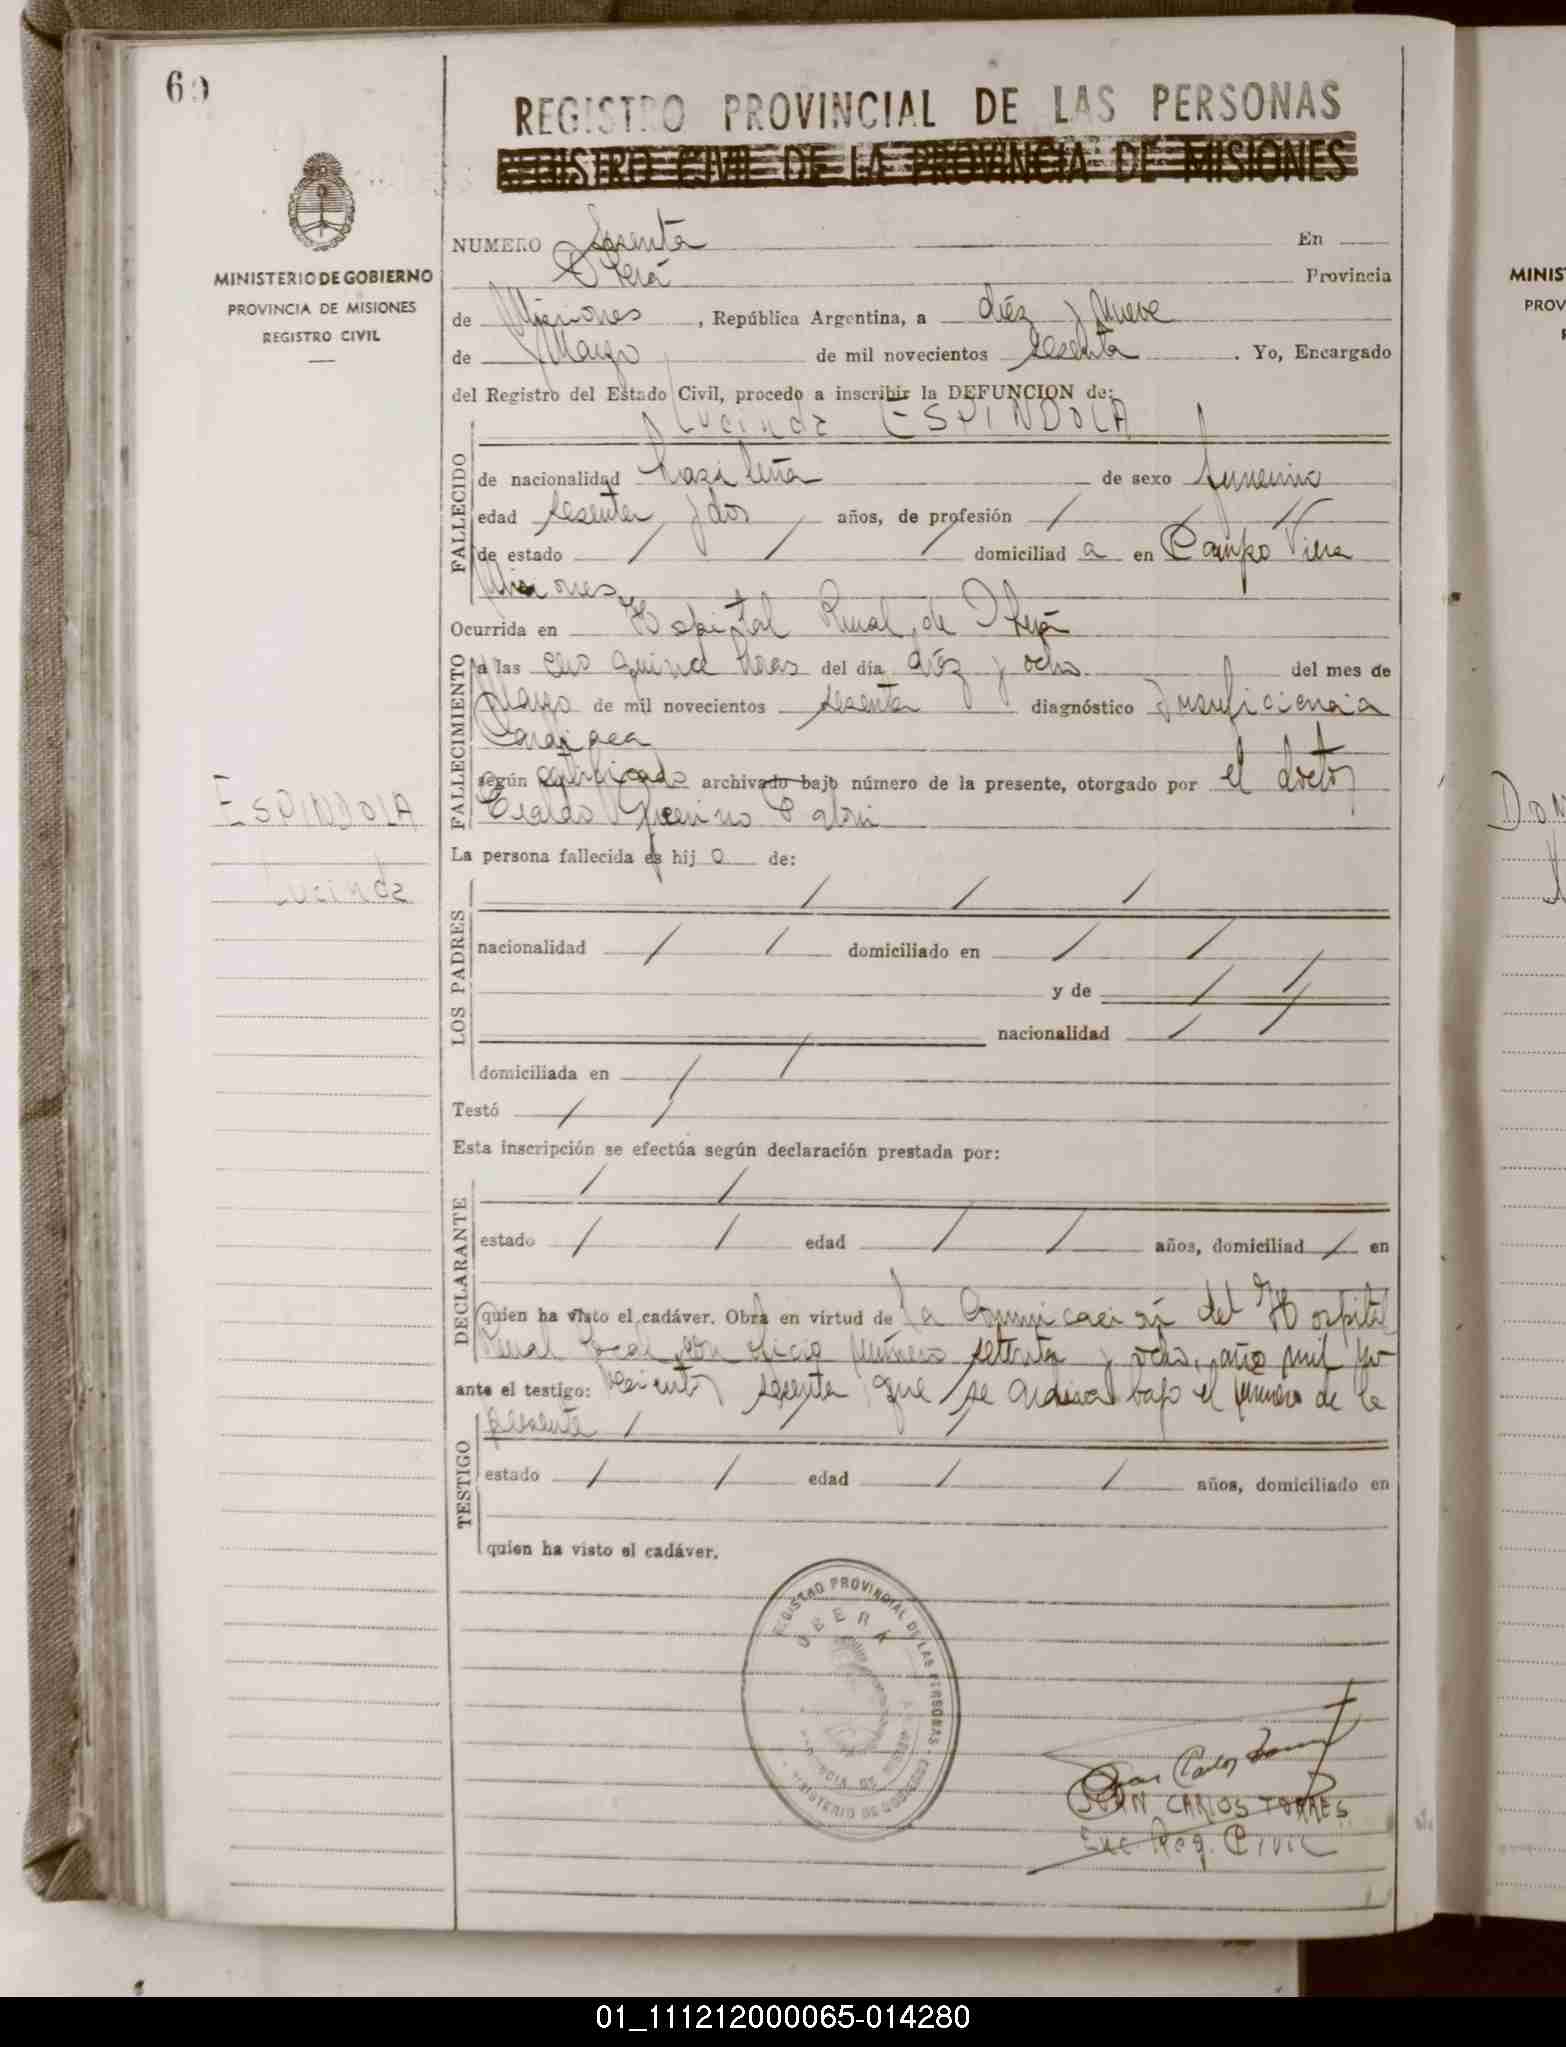 60
REGISTRO PROVINCIAL DE LAS PERSONAS
REGISTRO CIVIL DE LA PROVINCIA DE MISIONES
MINISTERIO DE GOBIERNO
PROVINCIA DE MISIONES
REGISTRO CIVIL
NUMERO Sesenta En
Oberá Provincia
de Misiones, República Argentina, a diéz y nueve
de Mayo de mil novecientos sesenta. Yo, Encargado
del Registro del Estado Civil, procedo a inscribir la DEFUNCION de:
Lucinda ESPINDOLA
FALLECIDO
de nacionalidad brasileña de sexo femenino
edad sesenta y dos años, de profesión / / //
de estado / / / domiciliad a en Campo Viera
Misiones
Ocurrida en Hospital Rural de Oberá
FALLECIMIENTO
a las quince horas del día diéz y ocho del mes de
Mayo de mil novecientos sesenta diagnóstico Insuficiencia
Cardiaca
según certificado archivado bajo número de la presente, otorgado por el doctor
ESPINDOLA
Lucinda
La persona fallecida es hij o de:
/ / /
LOS PADRES
nacionalidad / / domiciliado en / /
y de / /
nacionalidad / /
domiciliada en / /
Testó / /
Esta inscripción se efectúa según declaración prestada por:
/ /
DECLARANTE
estado / / edad / / años, domiciliad / en
quien ha visto el cadáver. Obra en virtud de la Comunicación del Hospital
Rural local, con oficio número setenta y ocho, año mil no-
ante el testigo: vecientos sesenta que se archiva bajo el número de la
presente / / /
TESTIGO
estado / / edad / / años, domiciliado en
quien ha visto el cadáver.
REGISTRO PROVINCIAL DE LAS PERSONAS
OBERA
MINISTERIO DE GOBIERNO
Juan Carlos Torres
JUAN CARLOS TORRES
Enc Reg. Civil
MINIS
PROV
DOM
01_111212000065-014280